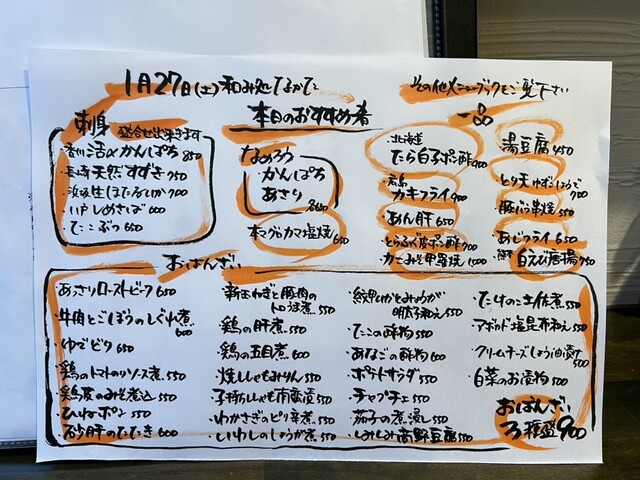 1月27日(土)和み処てながて
その他メニューブックもご覧下さい
本日のおすすめ肴
刺身 盛合せ出来ます
・香川活〆かんぱち 850
・長崎天然すずき 750
・浜坂生ほたるいか 700
・〆さば 600
・たこぶつ 650
なめろう
・かんぱち
・あさり
各650
本マグロカマ塩焼 650
一品
・北海道たら白子ポン酢 900
・広島カキフライ 900
・あん肝 650
・とらふぐ皮ポン酢 700
・カニみそ甲羅焼 1000
湯豆腐 450
・とり天ゆずこしょう 700
・豚バラ串焼 550
・あじフライ 650
白えび唐揚 750
おばんざい
・あさりローストビーフ 650
・牛肉とごぼうのしぐれ煮 600
・ゆでピタ 650
・鶏のトマトソース煮 550
・鶏皮のみそ煮込 550
・ひねポン 550
・砂肝のたたき 600
・新玉ねぎと豚肉のトロうま煮 550
・鶏の肝煮 550
・鶏の五目煮 600
・焼ししゃもみりん 550
・子持ししゃも南蛮漬 550
・わかさぎのピリ辛煮 550
・いわしのしょうが煮 550
・紋甲いかとみょうが明太和え 550
・たこの酢物 550
・あなごの酢物 600
・ポテトサラダ 550
・チャプチェ 550
・茄子の煮浸し 550
・しみしみ高野豆腐 550
・たけのこ土佐煮 550
・アボカド塩昆布和え 550
・クリームチーズしょう油漬け 500
・白菜のお漬物 500
おばんざい
3種盛 900